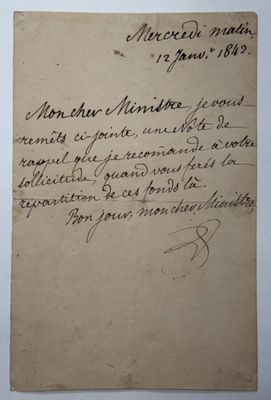 Mercredi matin,
12 Janv.r 1842.
Mon cher Ministre, je vous
remêts ci-jointe, une Note de
rappel que je recomande à votre
sollicitude, quand vous ferés la
répartition de ces fonds là.
Bon jour, mon cher Ministre,